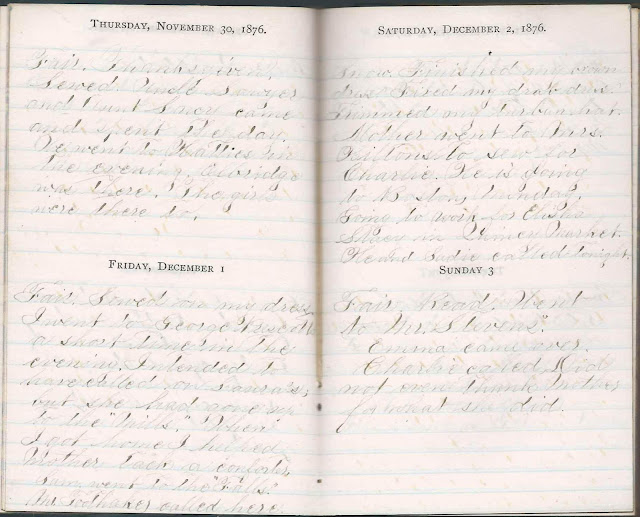 THURSDAY, NOVEMBER 30, 1876.
Fair. Thanksgiving.
Sewed. Uncle Sawyer
and Aunt Lucy came
and spent the day.
We went to Hatties in
the evening.
was there. The girls
were there to.
FRIDAY, DECEMBER 1
Fair. Sewed on my dress.
I went to George
a short time in the
evening. Intended to
have called on Laura's,
but she had gone up
to the "Mills." When
I got home I helped
Mother tack a comforter.
went to the "Falls."
Mr called here.
SATURDAY, DECEMBER 2, 1876.
Snow. Finished my brown
dress. Fixed my drab dress.
Trimmed my turban hat.
Mother went to Mrs.
to sew for
Charlie. He is going
to Boston, Monday,
going to work for Elisha
Stacy in Market.
and Sadie called tonight.
SUNDAY 3
Fair. Read. Went
to Mr. Stevens'.
Emma came over.
Charlie called. Did
not even thank Mother
for what she did.